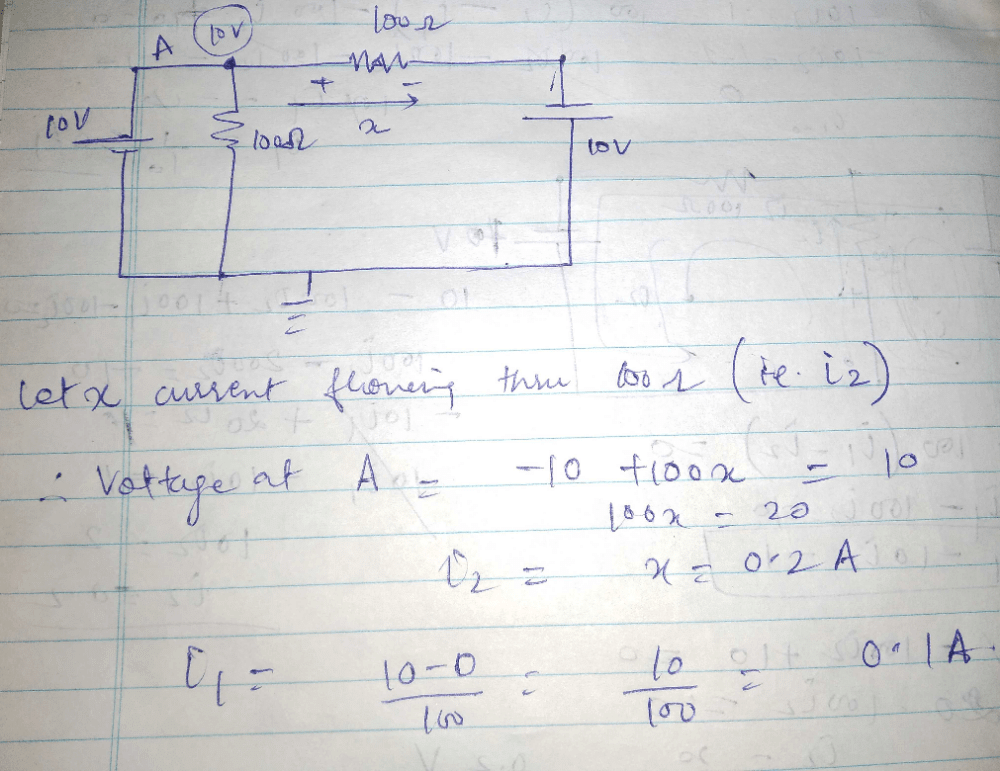 100Ω
A 10V
+ -
10V 100Ω x 10V
Let x current flowing thru 100Ω (ie. i2)
∴ Voltage at A = -10 + 100x = 10
100x = 20
i2 = x = 0.2 A
i1 = 10-0/100 = 10/100 = 0.1A.